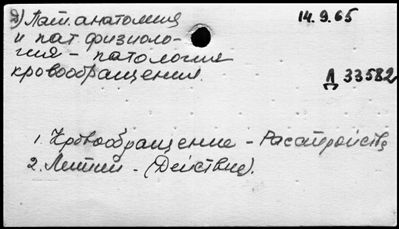 2) Пат. анатомия
14.9.65
и пат физиоло-
гия - патология
кровообращения.
Д 33582
1. Кровообращение - Расстройств
2. Лития - (Действие).